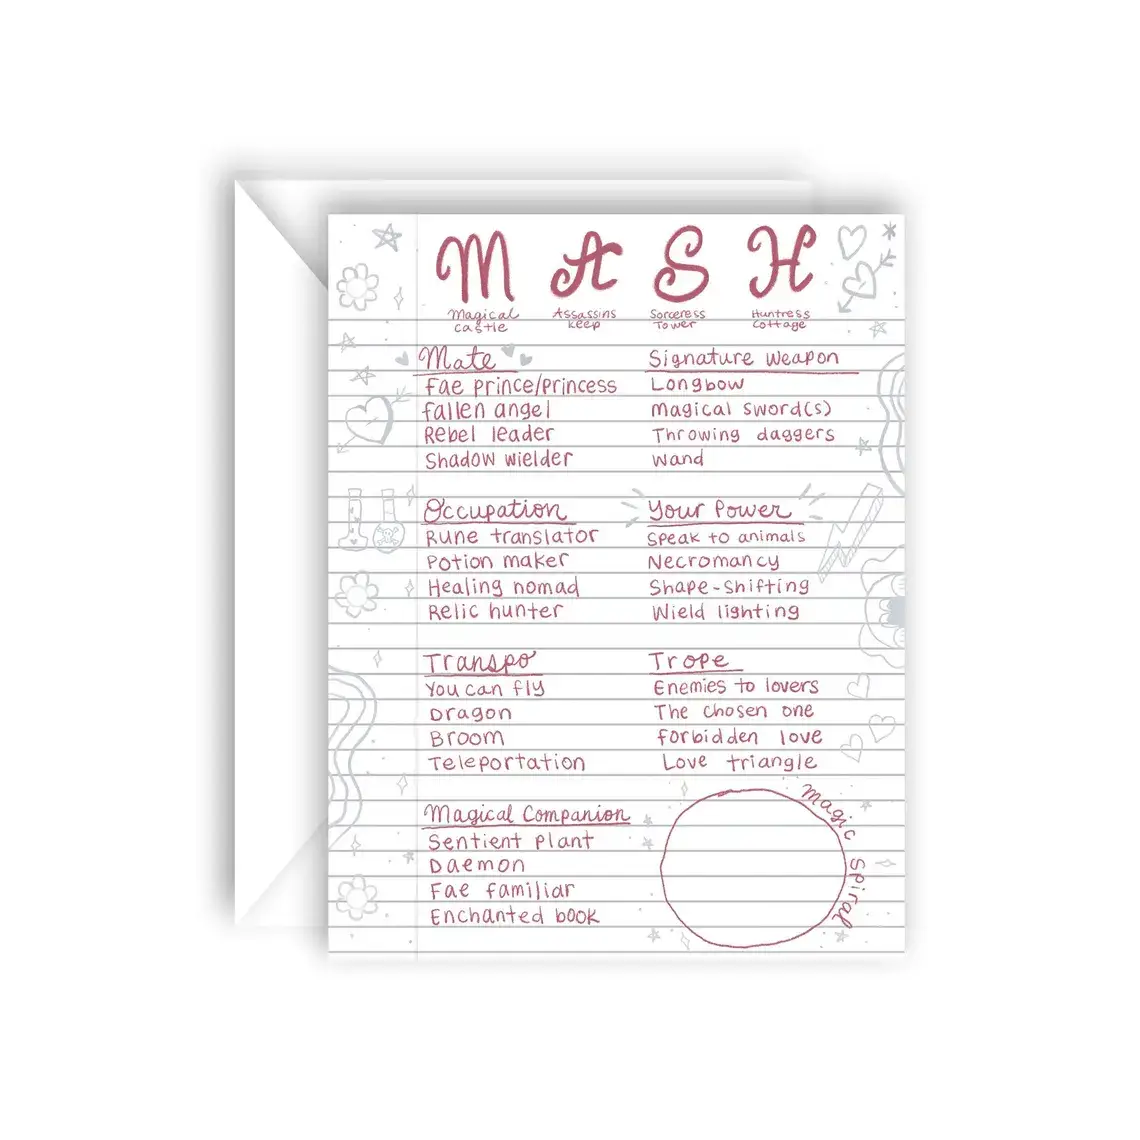 M A S H
Magical Castle
Assassins Keep
Sorceress Tower
Huntress Cottage
Mate
Fae prince/princess
Fallen angel
Rebel leader
Shadow wielder
Signature Weapon
Longbow
Magical sword(s)
Throwing daggers
Wand
Occupation
Rune translator
Potion maker
Healing nomad
Relic hunter
Your Power
Speak to animals
Necromancy
Shape-Shifting
Wield lighting
Transpo
You can fly
Dragon
Broom
Teleportation
Trope
Enemies to lovers
The chosen one
Forbidden love
Love triangle
Magical Companion
Sentient Plant
Daemon
Fae familiar
Enchanted book
Magic Spiral